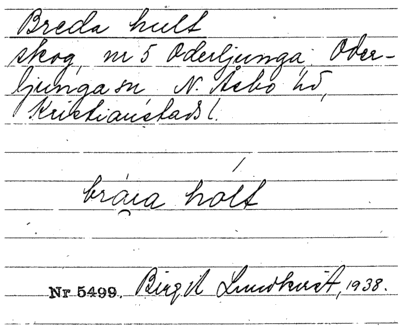 Breda hult
skog, nr 5 Oderljunga, Oder-
ljunga sn N. Åsbo hd,
Kristianstads l.
bräia hólt
Nr 5499. Birgit Lundkvist, 1938.